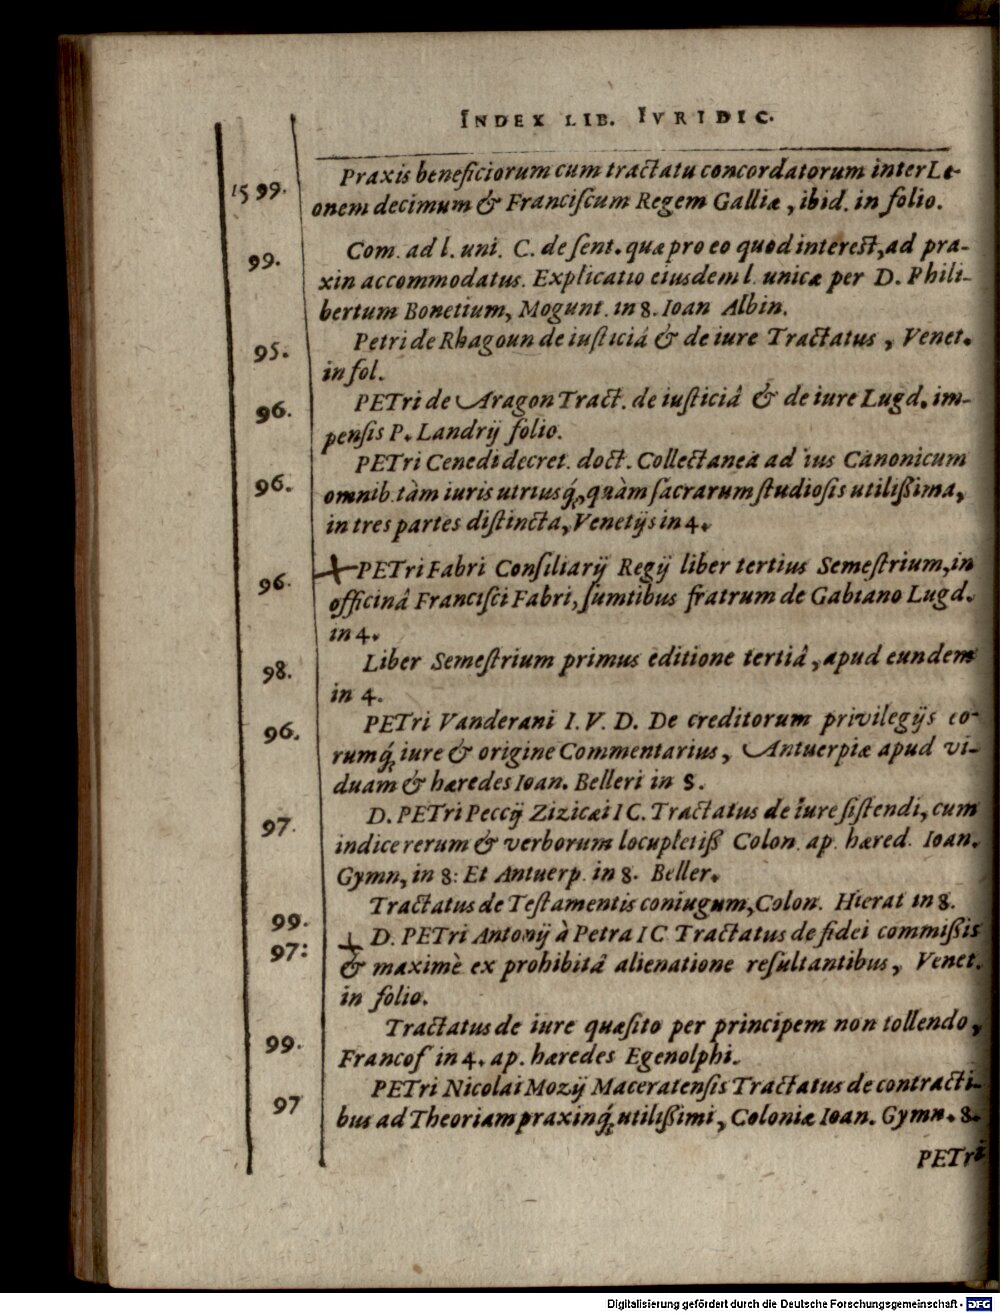 INDEX LIB. IVRIDIC.
1599. Praxis beneficiorum cum tractatu concordatorum inter Le-
onem decimum & Franciſcum Regem Galliæ, ibid. in folio.
99. Com. ad l. uni. C. de ſent. quæ pro eo quod intereſt, ad pra-
xin accommodatus. Explicatio eiusdem l. unicæ per D. Phili-
bertum Bonetium, Mogunt. in 8. Ioan Albin.
95. Petri de Rhagoun de iuſticiâ & de iure Tractatus, Venet.
in fol.
96. PETri de Aragon Tract. de iuſticiâ & de iure Lugd. im-
penſis P. Landrÿ folio.
96. PETri Cenedi decret. doct. Collectanea ad ius Canonicum
omnib. tàm iuris utriusq́;, quàm ſacrarum ſtudioſis utiliſſima,
in tres partes diſtincta, Venetÿs in 4.
96. PETri Fabri Conſiliarÿ Regÿ liber tertius Semeſtrium, in
officinâ Franciſci Fabri, ſumtibus fratrum de Gabiano Lugd.
in 4.
98. Liber Semeſtrium primus editione tertiâ, apud eundem
in 4.
96. PETri Vanderani I. V. D. De creditorum privilegÿs eo-
rumq́; iure & origine Commentarius, Antuerpiæ apud vi-
duam & hæredes Ioan. Belleri in 8.
97. D. PETri Peccÿ Zizicæi IC. Tractatus de iure ſiſtendi, cum
indice rerum & verborum locupletiſſ Colon. ap. hæred. Ioan.
Gymn, in 8: Et Antuerp. in 8. Beller.
99. Tractatus de Teſtamentis coniugum, Colon. Hierat in 8.
97: D. PETri Antonÿ à Petra IC Tractatus de fidei commiſſis
& maximè ex prohibitâ alienatione reſultantibus, Venet.
in folio.
99. Tractatus de iure quæſito per principem non tollendo,
Francof in 4. ap. hæredes Egenolphi.
97 PETri Nicolai Mozÿ Maceratenſis Tractatus de contracti-
bus ad Theoriam praxinq́; utiliſſimi, Coloniæ Ioan. Gymn. 8.
PETri
Digitalisierung gefördert durch die Deutsche Forschungsgemeinschaft - DFG